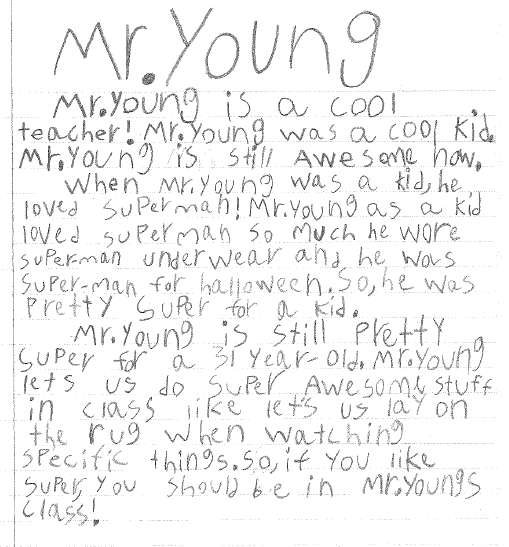 Mr. Young
Mr. Young is a cool
teacher! Mr. Young was a cool kid.
Mr. Young is still Awesome now.
When Mr. Young was a kid, he
loved superman! Mr. Young as a kid
loved superman so much he wore
super-man underwear and he was
super-man for halloween. So, he was
Pretty Super for a kid.
Mr. Young is still Pretty
super for a 31 Year-old. Mr. Young
lets us do super Awesome stuff
in class like let's us lay on
the rug when watching
specific things. So, if you like
super, you should be in Mr. Youngs
class!